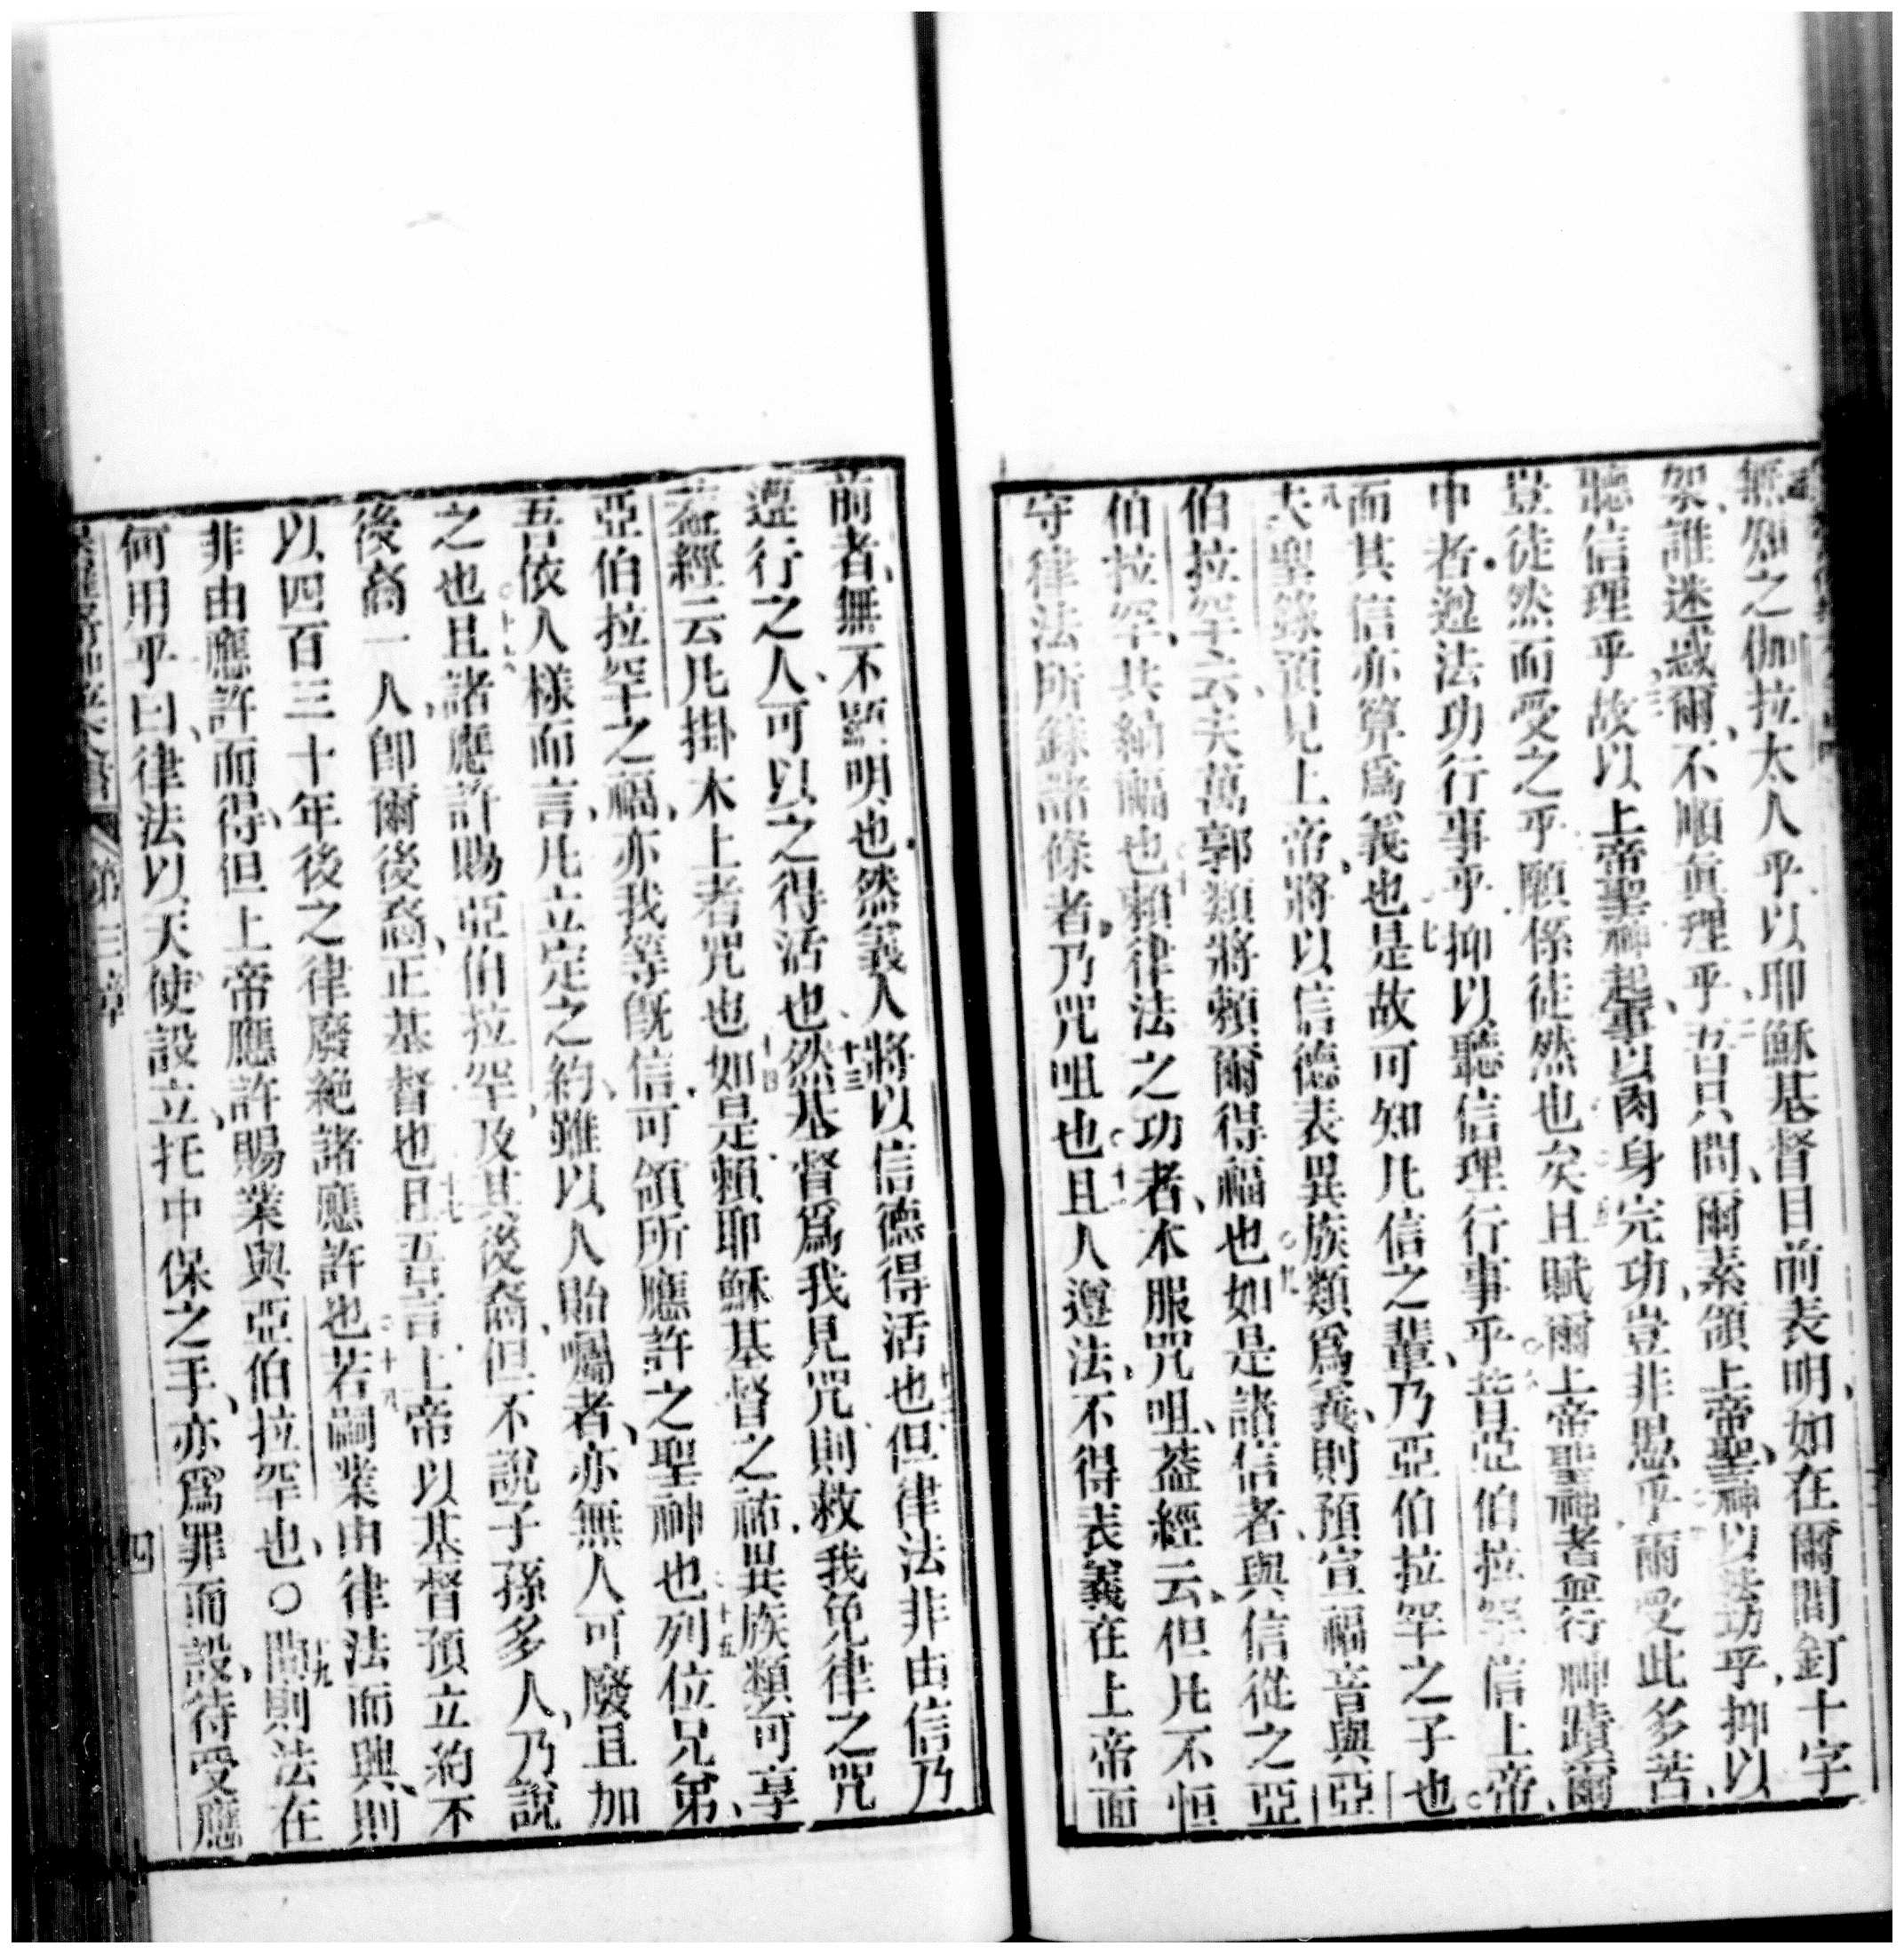 無知之伽拉太人乎以耶穌基督目前表明、如在爾間釘十字
架、誰迷惑爾、不順眞理乎、吾只問、爾素領上帝聖神以法功乎、抑以
聽信理乎、故以上帝聖神起肇、以肉身完功、豈非愚乎爾受此多苦、
豈徒然而受之乎願係徒然也矣且賦爾上帝聖神者並行神蹟爾
中者遵法功行事乎抑以聽信理行事乎昔亞伯拉罕信上帝、
而其信亦算爲義也是故可知凡信之輩、乃亞伯拉罕之子也
夫聖錄預見上帝、將以信德表異族類爲義、則預宣福音與亞
伯拉罕云、夫萬郭類將賴爾得福也如是諸信者、與信從之亞
伯拉罕、共納福也賴律法之功者、本服咒咀、蓋經云、但凡不恒
守律法所錄諸條者、乃咒咀也且人遵法、不得表義在上帝面
前者、無不顯明也然義人將以信德得活也但律法非由信乃
遵行之人、可以之得活也、然基督爲我見咒則救我免律之咒
蓋經云凡掛木上者咒也如是賴耶穌基督之祐、異族類可享
亞伯拉罕之福、亦我等旣信可領所應許之聖神也列位兄弟、
吾依人樣而言、凡立定之約、雖以人貽囑者、亦無人可廢且加
之也且諸應許賜亞伯拉罕、及其後裔、但不說子孫多人、乃說
後裔一人、卽爾後裔、正基督也且吾言上帝以基督預立約不
以四百三十年後之律廢絕諸應許也若嗣業由律法而興、則
非由應許而得、但上帝應許賜業與亞伯拉罕也、○問則法在
何用乎曰、律法以天使設立、托中保之手、亦爲罪而設、待受應
第三章
四